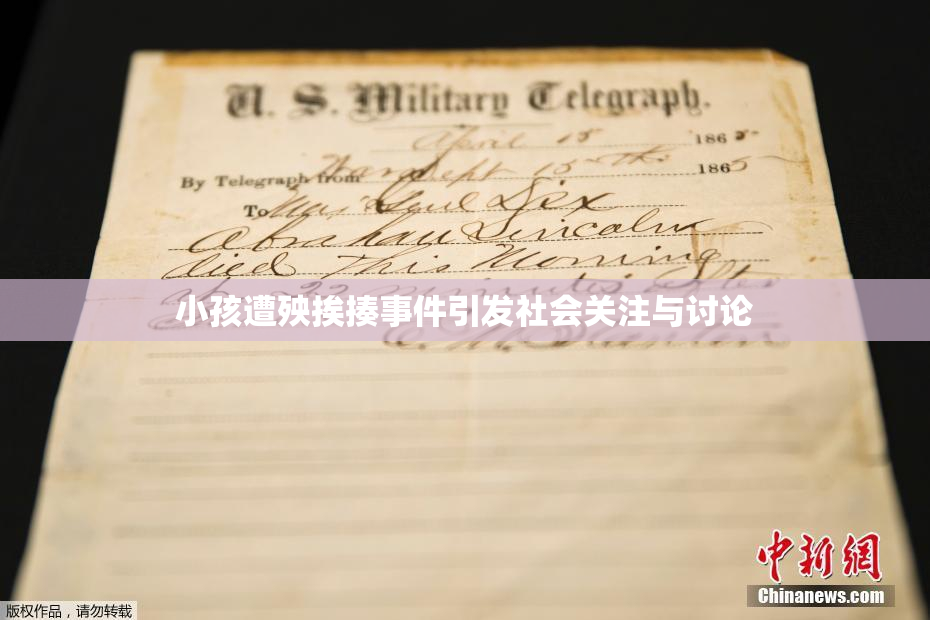 U. S. Military Telegraph.
April 15 1865
By Telegraph from War Dept 15th 1865
To Maj Genl Dix
Abraham Lincoln
died This Morning
22 minutes after
小孩遭殃挨揍事件引发社会关注与讨论
E. M. Stanton
中新网
Chinanews.com
版权作品,请勿转载